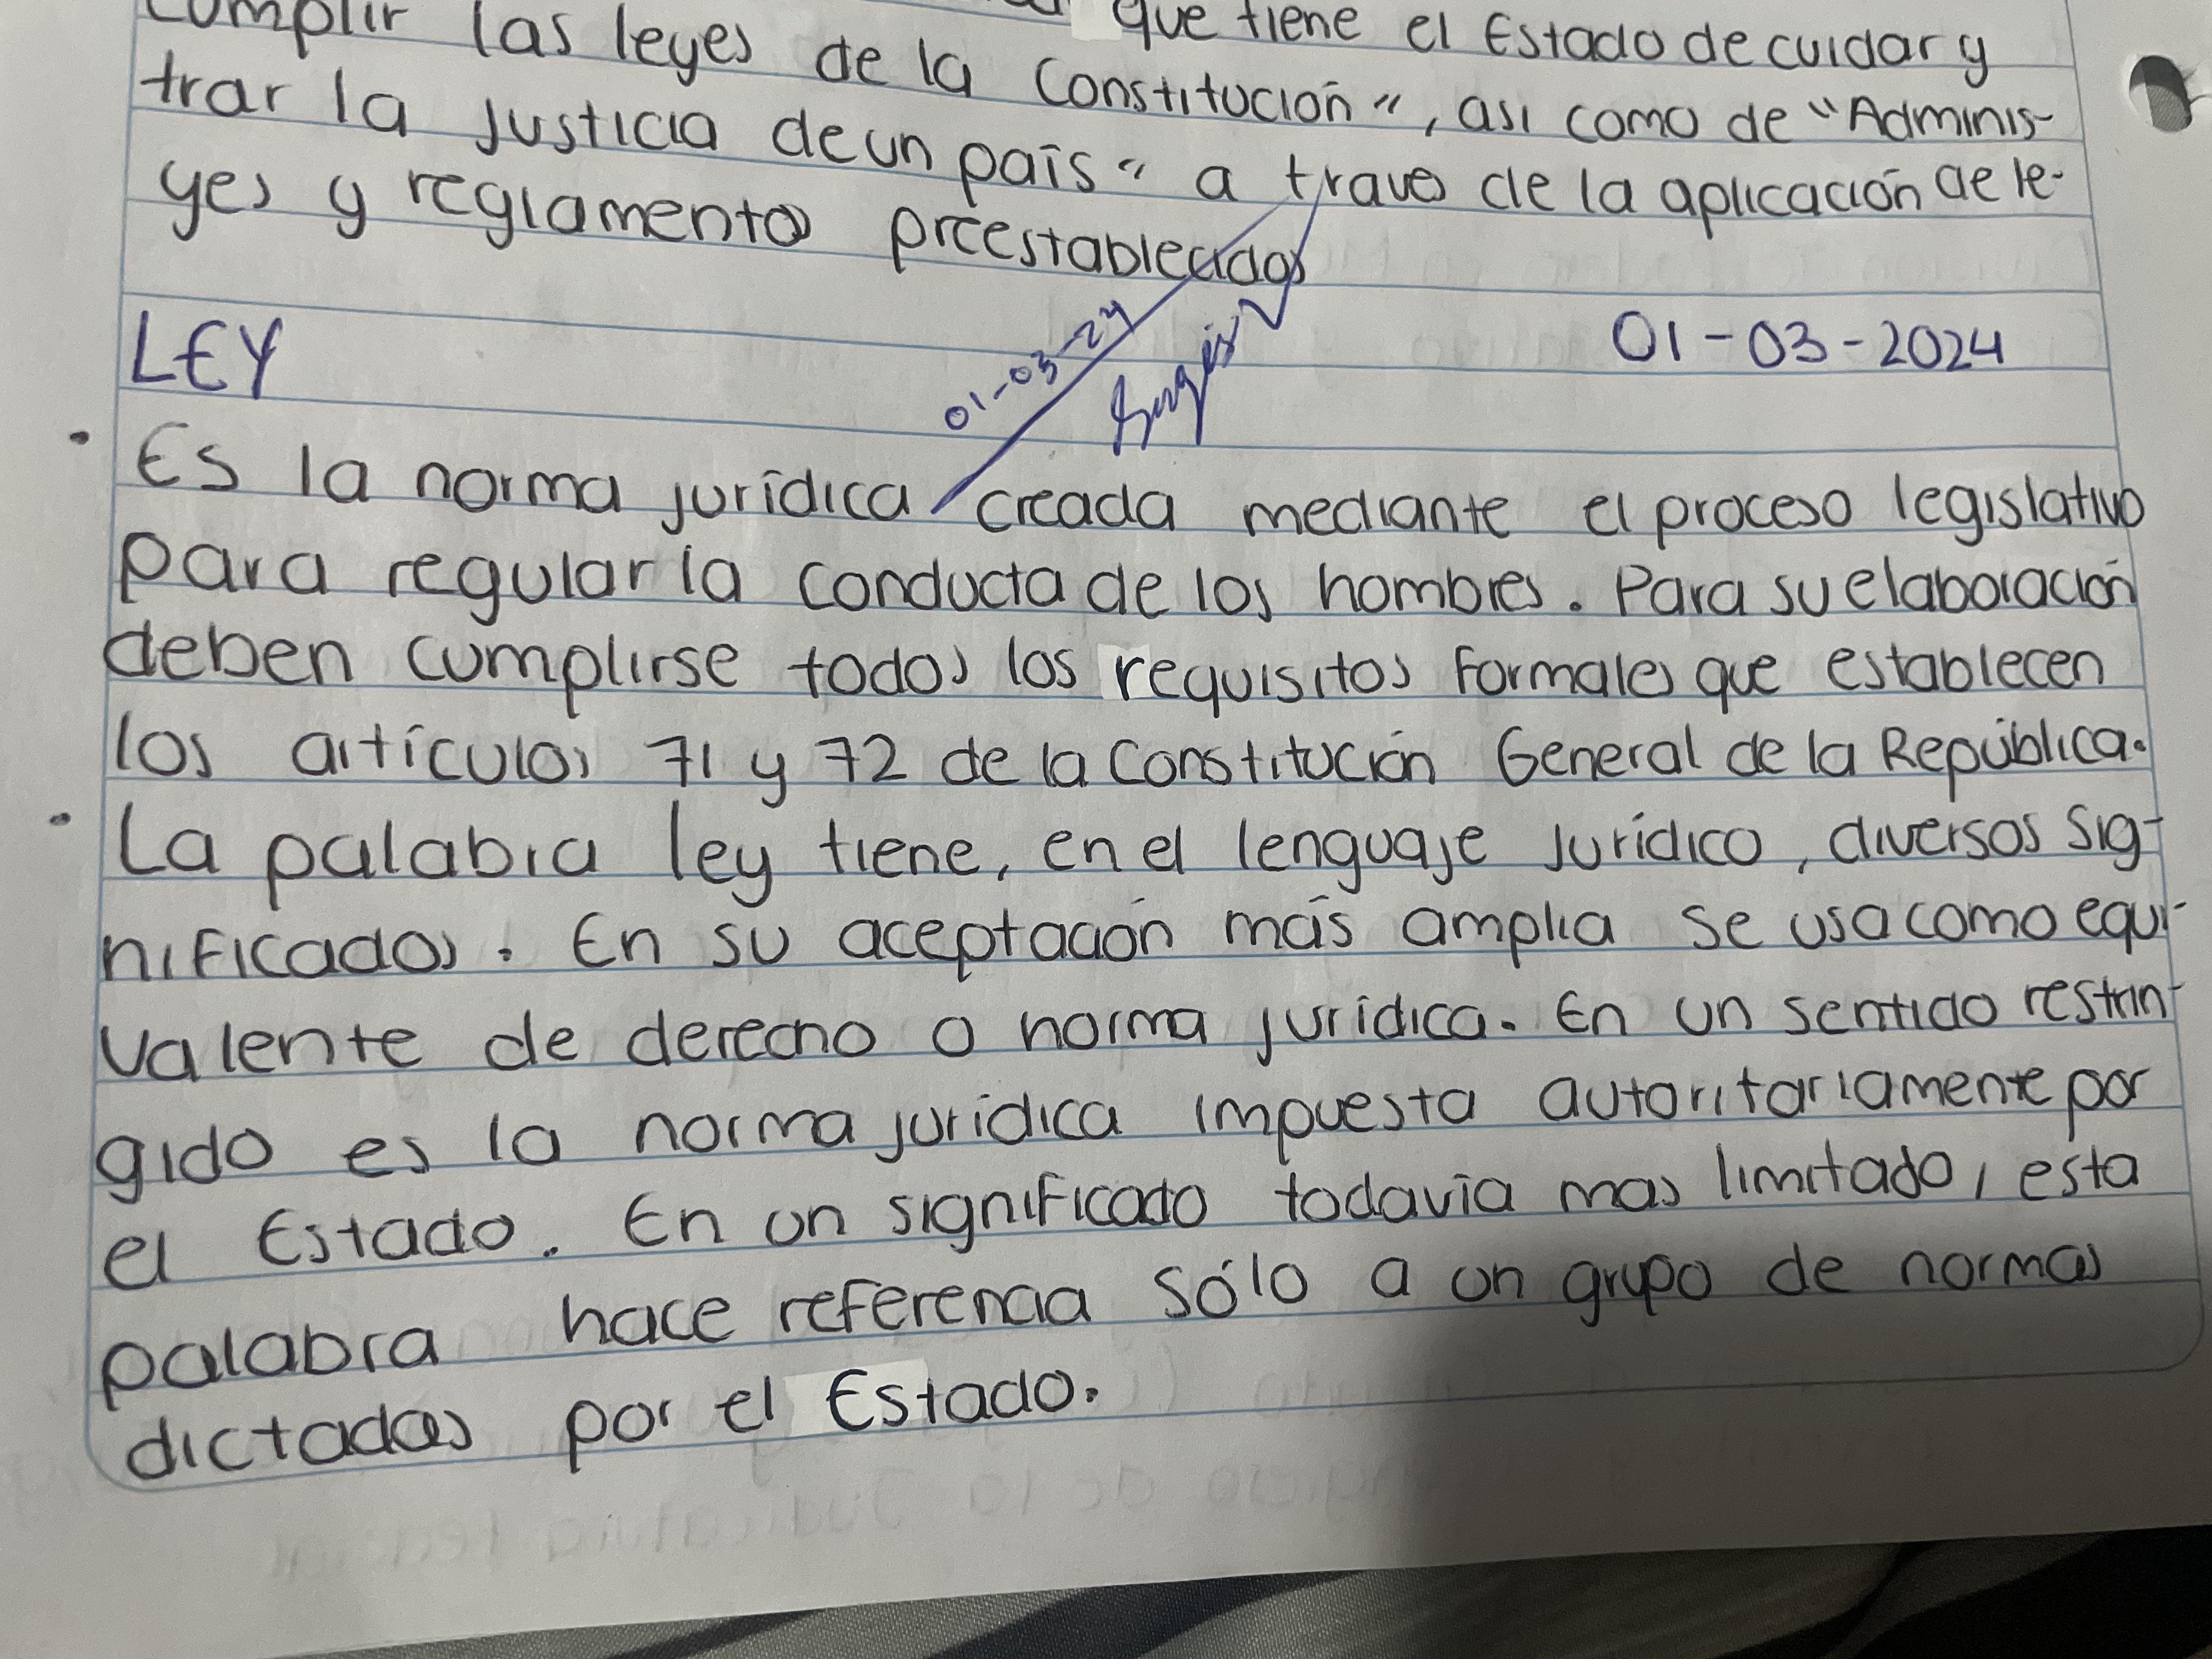 que tiene el Estado de cuidar y
cumplir las leyes de la Constitución", así como de "Adminis-
trar la justicia de un país" a traves de la aplicación de le-
yes y reglamentos preestablecidos
01-03-24
LEY 01-03-2024
• Es la norma jurídica creada mediante el proceso legislativo
para regular la conducta de los hombres. Para su elaboración
deben cumplirse todos los requisitos formales que establecen
los artículos 71 y 72 de la Constitución General de la República.
• La palabra ley tiene, en el lenguaje jurídico, diversos sig-
nificados. En su aceptación más amplia se usa como equi-
valente de derecho o norma jurídica. En un sentido restrin-
gido es la norma jurídica impuesta autoritariamente por
el Estado. En un significado todavía mas limitado, esta
palabra hace referencia sólo a un grupo de normas
dictadas por el Estado.